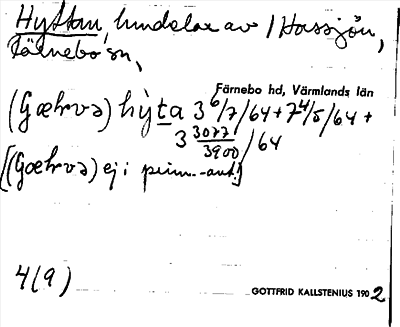 Hyttan, hundelar av / Hassjön,
Färnebo sn,
Färnebo hd, Värmlands län
(Gæhrvə) hỳta 3 6/7/64 + 7 4/5/64 +
3 3077/3900/64
[(Gæhrvə) ej i prim.-ant.]
4(9)
GOTTFRID KALLSTENIUS 1902